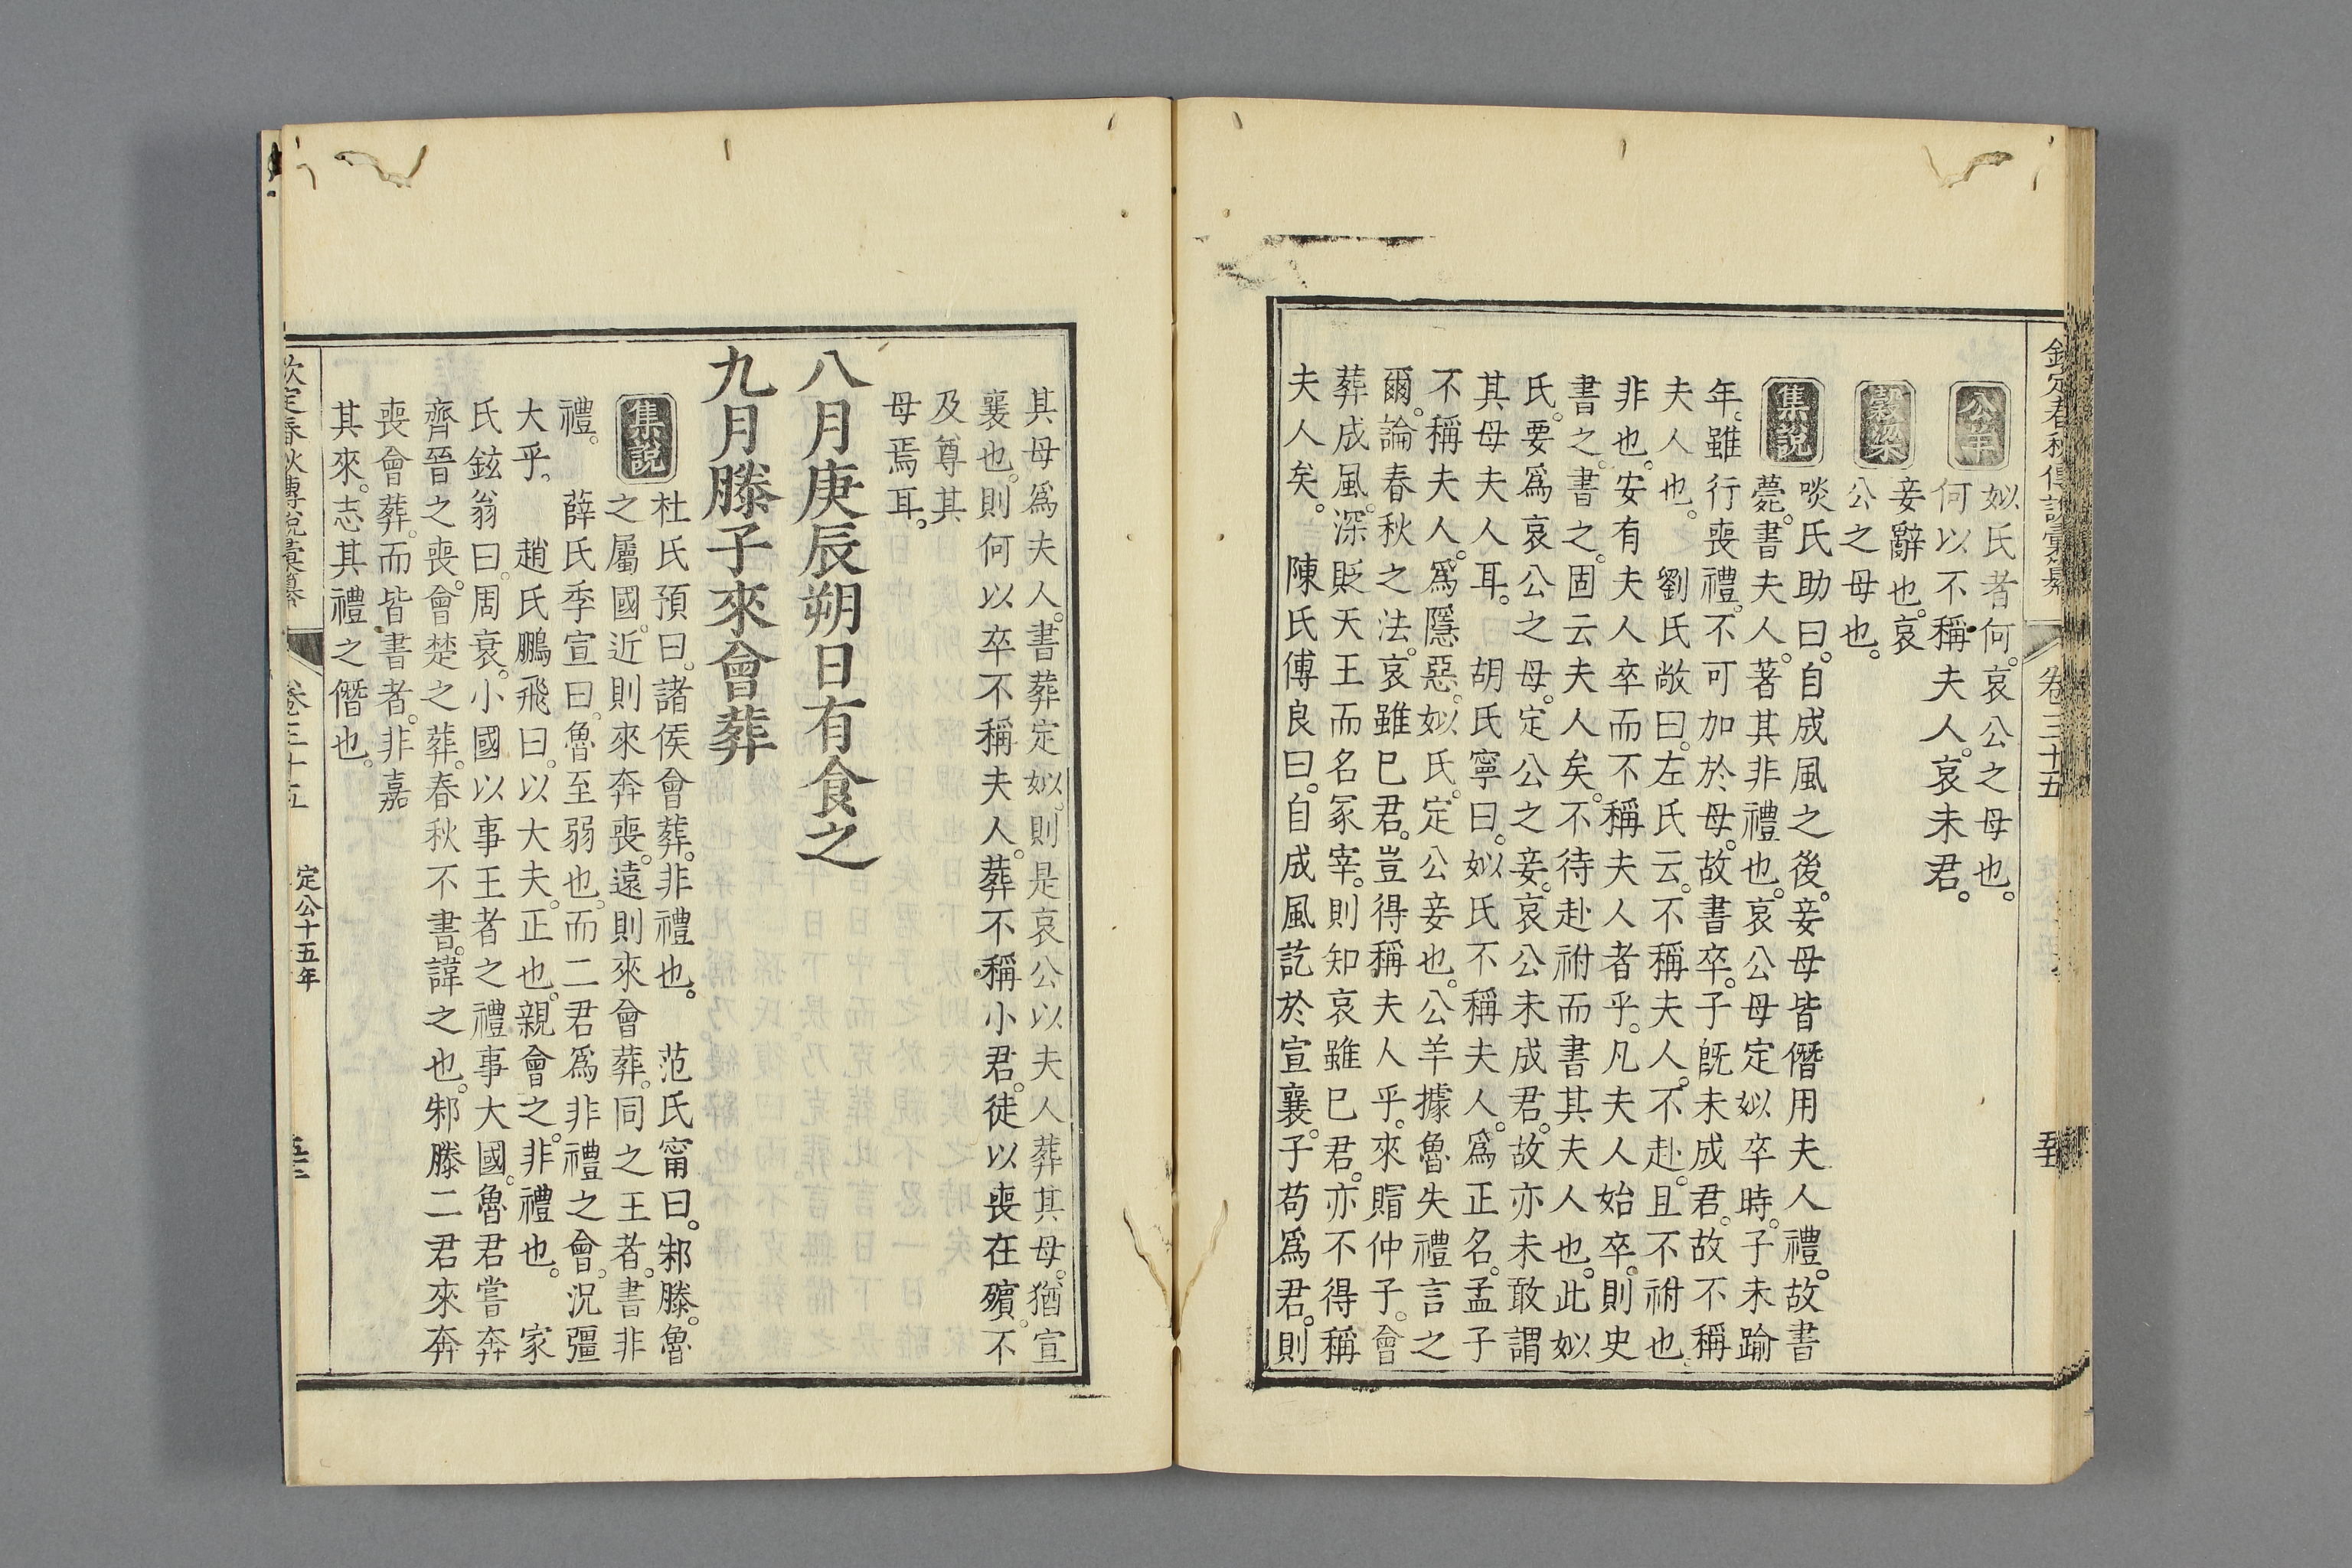 欽定春秋傳說彙纂 卷三十五
公羊
姒氏者何。哀公之母也。
何以不稱夫人。哀未君。
穀梁
妾辭也。哀
公之母也。
集說
啖氏助曰。自成風之後。妾母皆僭用夫人禮。故書
薨。書夫人。著其非禮也。哀公母定姒卒時。子未踰
年。雖行喪禮。不可加於母。故書卒。子旣未成君。故不稱
夫人也。 劉氏敞曰。左氏云。不稱夫人。不赴。且不祔也。
非也。安有夫人卒而不稱夫人者乎。凡夫人始卒。則史
書之。書之。固云夫人矣。不待赴祔而書其夫人也。此姒
氏。要爲哀公之母。定公之妾。哀公未成君。故亦未敢謂
其母夫人耳。 胡氏寧曰。姒氏不稱夫人。爲正名。孟子
不稱夫人。爲隱惡。姒氏。定公妾也。公羊據魯失禮言之
爾。論春秋之法。哀雖已君。豈得稱夫人乎。來賵仲子。會
葬成風。深貶天王而名冢宰。則知哀雖已君。亦不得稱
夫人矣。 陳氏傅良曰。自成風訖於宣襄。子苟爲君。則
其母爲夫人。書葬定姒。則是哀公以夫人葬其母。猶宣
襄也。則何以卒不稱夫人。葬不稱小君。徒以喪在殯。不
及尊其
母焉耳。
八月庚辰朔日有食之
九月滕子來會葬
集說
杜氏預曰。諸侯會葬。非禮也。 范氏甯曰。邾滕。魯
之屬國。近則來奔喪。遠則來會葬。同之王者。書非
禮。 薛氏季宣曰。魯至弱也。而二君爲非禮之會。況彊
大乎。 趙氏鵬飛曰。以大夫。正也。親會之。非禮也。 家
氏鉉翁曰。周衰。小國以事王者之禮事大國。魯君嘗奔
齊晉之喪。會楚之葬。春秋不書。諱之也。邾滕二君來奔
喪會葬。而皆書者。非嘉
其來。志其禮之僭也。
欽定春秋傳說彙纂 卷三十五 定公十五年